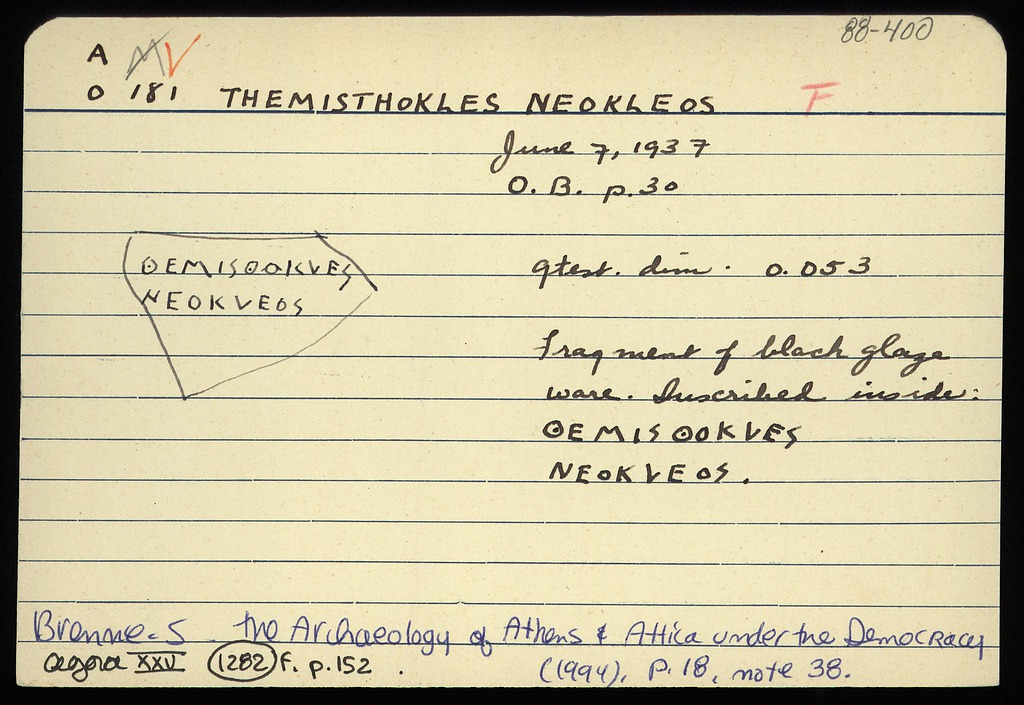 88-400
A MV
O 181 THEMISTHOKLES NEOKLEOS F
June 7, 1937
O.B. p.30
ΘEMISΘOKVES
NEOKVEOS
gtest. dim. 0.053
Fragment of black glaze
ware. Inscribed inside:
ΘEMISΘOKVES
NEOKVEOS.
Brenne-S the Archaeology of Athens & Attica under the Democracy
(1994), p.18, note 38.
agora XXV 1282 F. p.152.